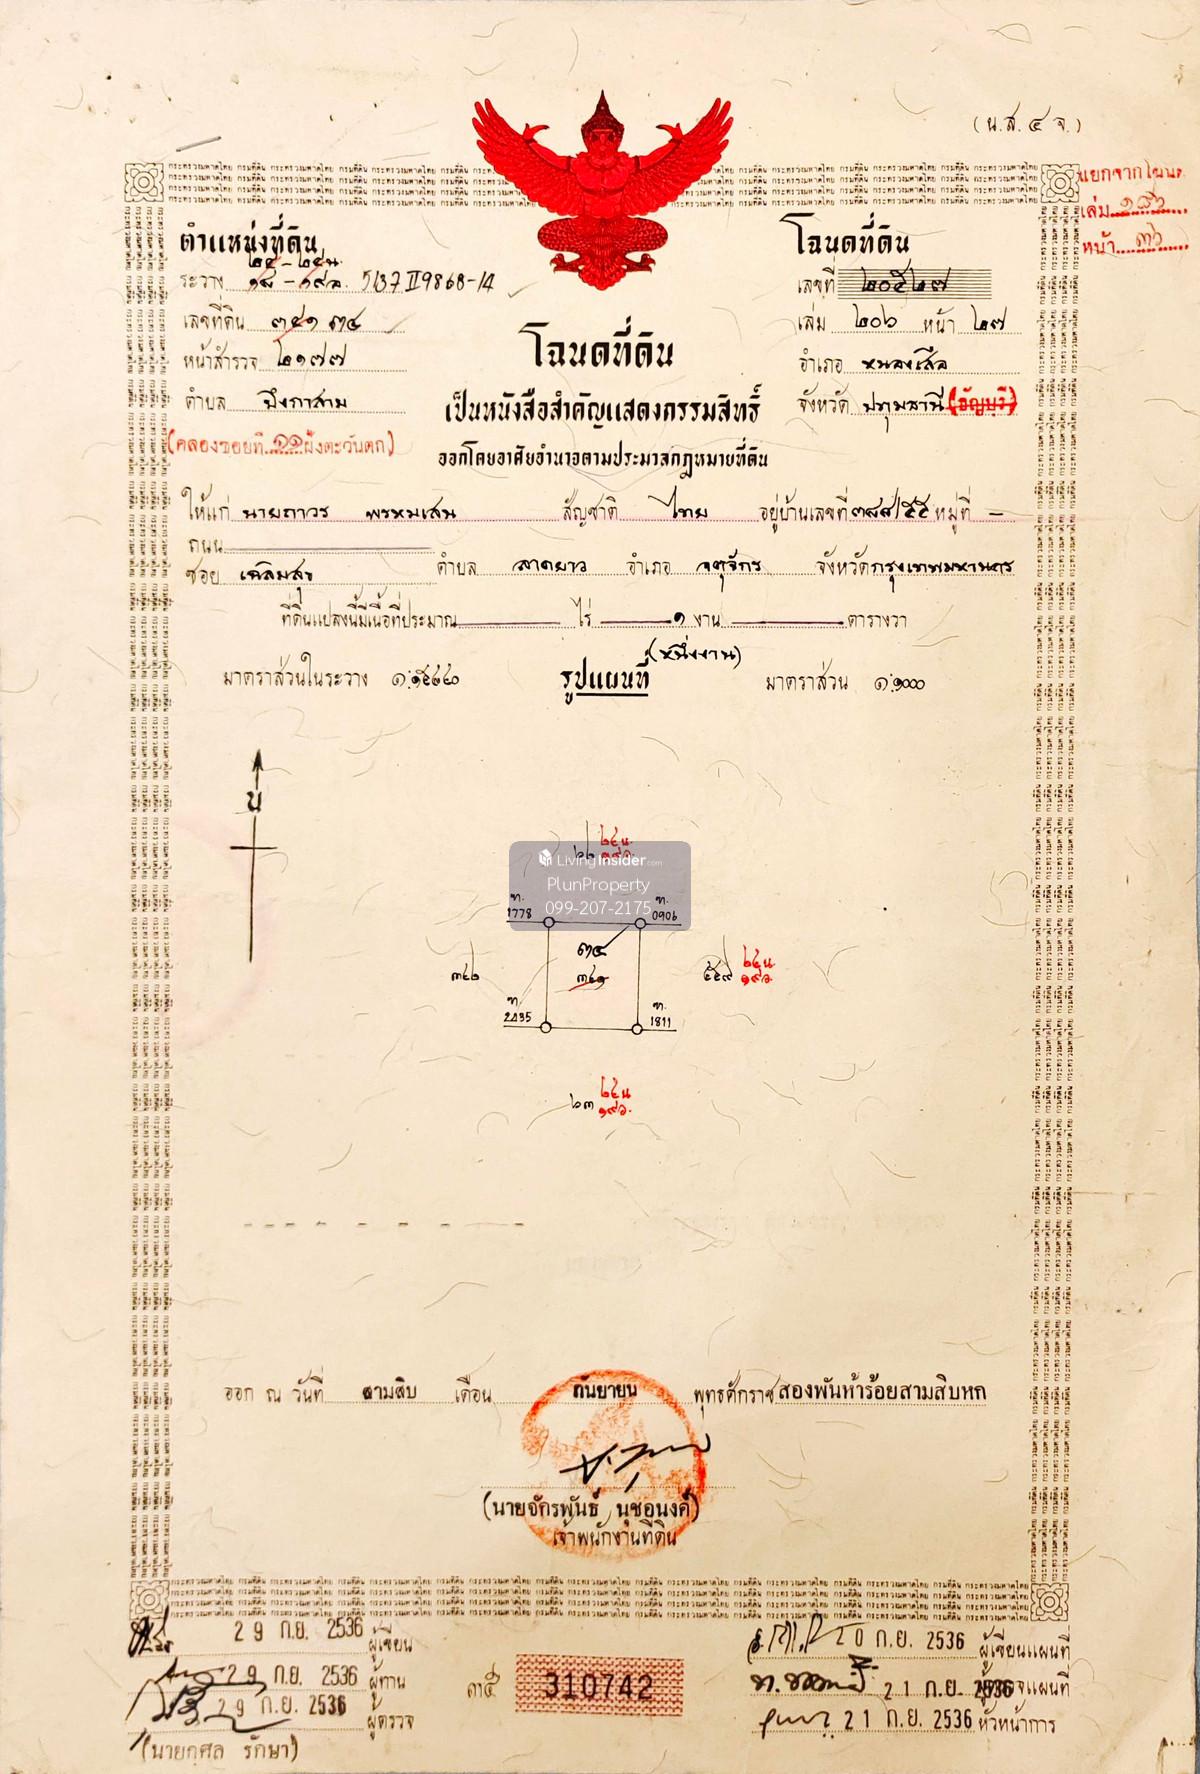 (น.ส.๔ จ.)
แยกจากโฉนด
เล่ม ๑๘๖
หน้า ๓๖
ตำแหน่งที่ดิน
๒๔-๒๔น.
ระวาง ๑๘-๑๙อ. 5137 II 9868-14
เลขที่ดิน ๓๔๑ ๓๔
หน้าสำรวจ ๒๑๗๗
ตำบล บึงกาสาม
(คลองซอยที่ ๑๑ ฝั่งตะวันตก)
โฉนดที่ดิน
เลขที่ ๒๐๕๒๗
เล่ม ๒๐๖ หน้า ๒๗
อำเภอ หนองเสือ
จังหวัด ปทุมธานี (ธัญบุรี)
โฉนดที่ดิน
เป็นหนังสือสำคัญแสดงกรรมสิทธิ์
ออกโดยอาศัยอำนาจตามประมวลกฎหมายที่ดิน
ให้แก่ นายถาวร พรหมเสน สัญชาติ ไทย อยู่บ้านเลขที่ ๓๘๘/๕๕ หมู่ที่ -
ถนน
ซอย เฉลิมสุข ตำบล ลาดยาว อำเภอ จตุจักร จังหวัด กรุงเทพมหานคร
ที่ดินแปลงนี้มีเนื้อที่ประมาณ ไร่ ๑ งาน ตารางวา
(หนึ่งงาน)
มาตราส่วนในระวาง รูปแผนที่ มาตราส่วน ๑:๑๐๐๐
น
๒๔น.
๑๙อ.
Livinginsider.com
PlunProperty
099-207-2175
ฑ. ฑ.
1778 0906
๓๔
๓๔๒ ๓๔๑ ๕๕๙ ๒๔น. ๑๙อ.
ฑ. ฑ.
2435 1811
๒๓ ๒๔น. ๑๙อ.
ออก ณ วันที่ สามสิบ เดือน กันยายน พุทธศักราช สองพันห้าร้อยสามสิบหก
(นายจักรพันธ์ นุชอนงค์)
เจ้าพนักงานที่ดิน
29 ก.ย. 2536 ผู้เขียน
29 ก.ย. 2536 ผู้ทาน
29 ก.ย. 2536 ผู้ตรวจ
(นายกุศล รักษา)
๓๕ 310742
20 ก.ย. 2536 ผู้เขียนแผนที่
21 ก.ย. 2536 ผู้ตรวจแผนที่
21 ก.ย. 2536 หัวหน้าการ